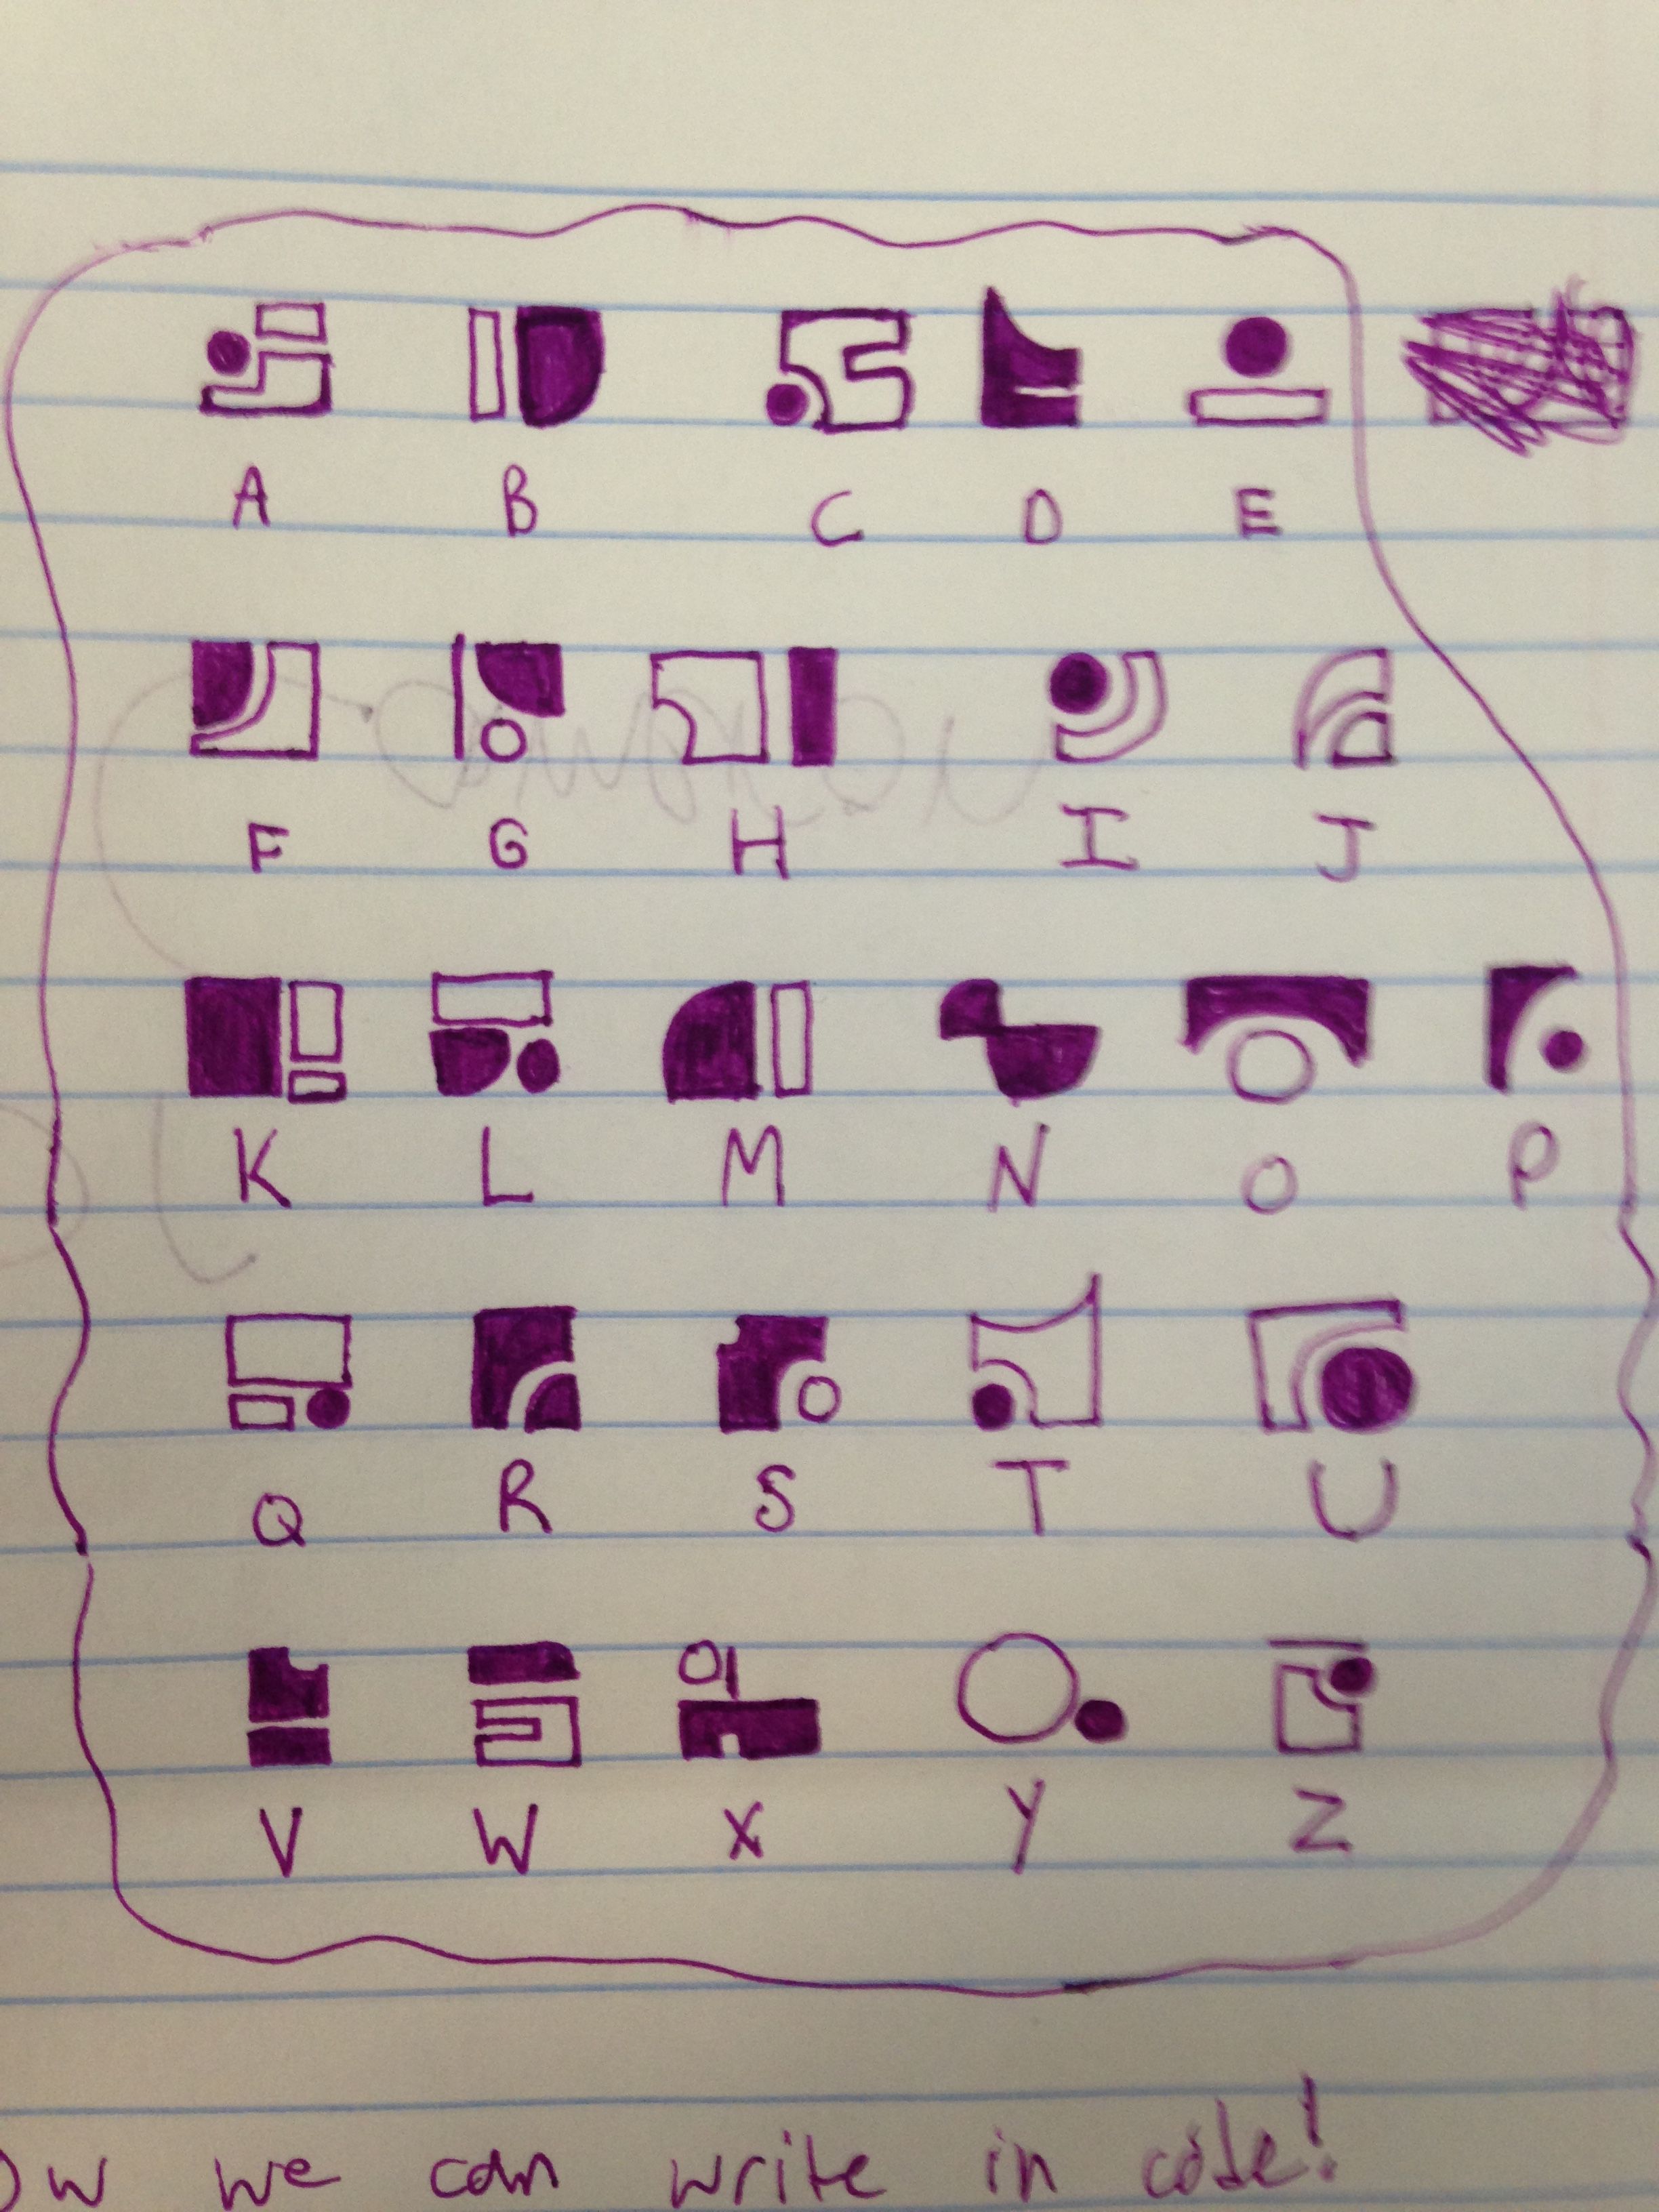 A B C D E
F G H I J
K L M N O P
Q R S T U
V W X Y Z
we can write in code!